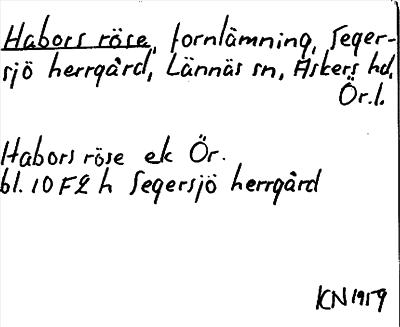 Habors röse, fornlämning, Seger-
sjö herrgård, Lännäs sn, Askers hd,
Ör.l.
Habors röse ek Ör.
bl. 10 F 2 h Segersjö herrgård
KN 1959